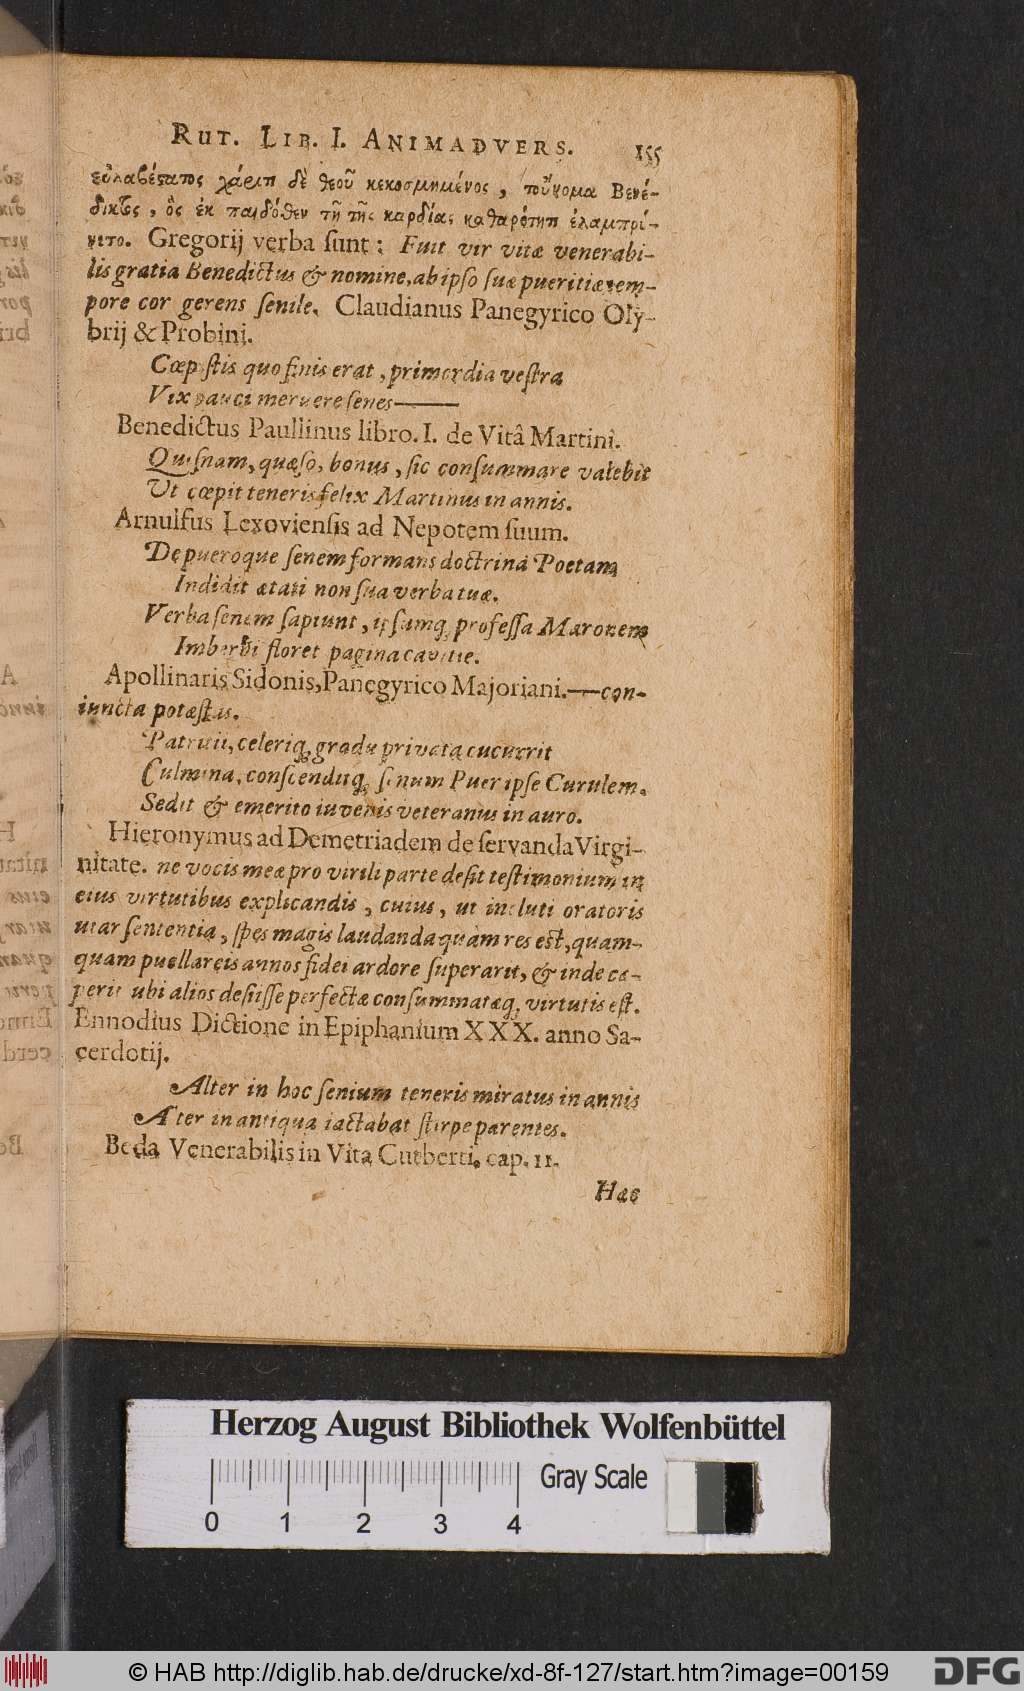 RUT. LIB. I. ANIMADVERS. 155
εὐλαβέςατος χάριτι δὲ θεοῦ κεκοσμημένος, τοὔνομα Βενέ-
δικτος, ὃς ἐκ παιδόθεν τῇ τῆς καρδίας καθαρότητι ἐλαμπρύ-
νετο. Gregorij verba sunt: Fuit vir vitæ venerabi-
lis gratia Benedictus & nomine, ab ipso suæ pueritiæ tem-
pore cor gerens senile. Claudianus Panegyrico Oly-
brij & Probini.
Cœpistis quo finis erat, primordia vestra
Vix pauci meruere senes——
Benedictus Paullinus libro. I. de Vitâ Martini.
Quisnam, quæso, bonus, sic consummare valebit
Ut cœpit teneris felix Martinus in annis.
Arnulfus Lexoviensis ad Nepotem suum.
De pueroque senem formans doctrinâ Poetam
Indidit ætati non sua verba tuæ.
Verba senem sapiunt, ipsumq; professa Maronem
Imberbi floret pagina canitie.
Apollinaris Sidonis, Panegyrico Majoriani.——con-
iuncta potæstas.
Patritii, celeriq; gradu privata cucurrit
Culmina, conscenditq; senum Puer ipse Curulem.
Sedit & emerito iuvenis veteranus in auro.
Hieronymus ad Demetriadem de servanda Virgi-
nitate. ne vocis meæ pro virili parte desit testimonium in
eius virtutibus explicandis, cuius, ut incluti oratoris
utar sententia, spes magis laudanda quàm res est, quam-
quam puellareis annos fidei ardore superarit, & inde cœ-
perit ubi alios desiisse perfectæ consummatæq; virtutis est.
Ennodius Dictione in Epiphanium XXX. anno Sa-
cerdotij.
Alter in hoc senium teneris miratus in annis
Alter in antiqua iactabat stirpe parentes.
Beda Venerabilis in Vita Cutberti. cap. 11.
Hæc
Herzog August Bibliothek Wolfenbüttel
Gray Scale
0 1 2 3 4
© HAB http://diglib.hab.de/drucke/xd-8f-127/start.htm?image=00159
DFG